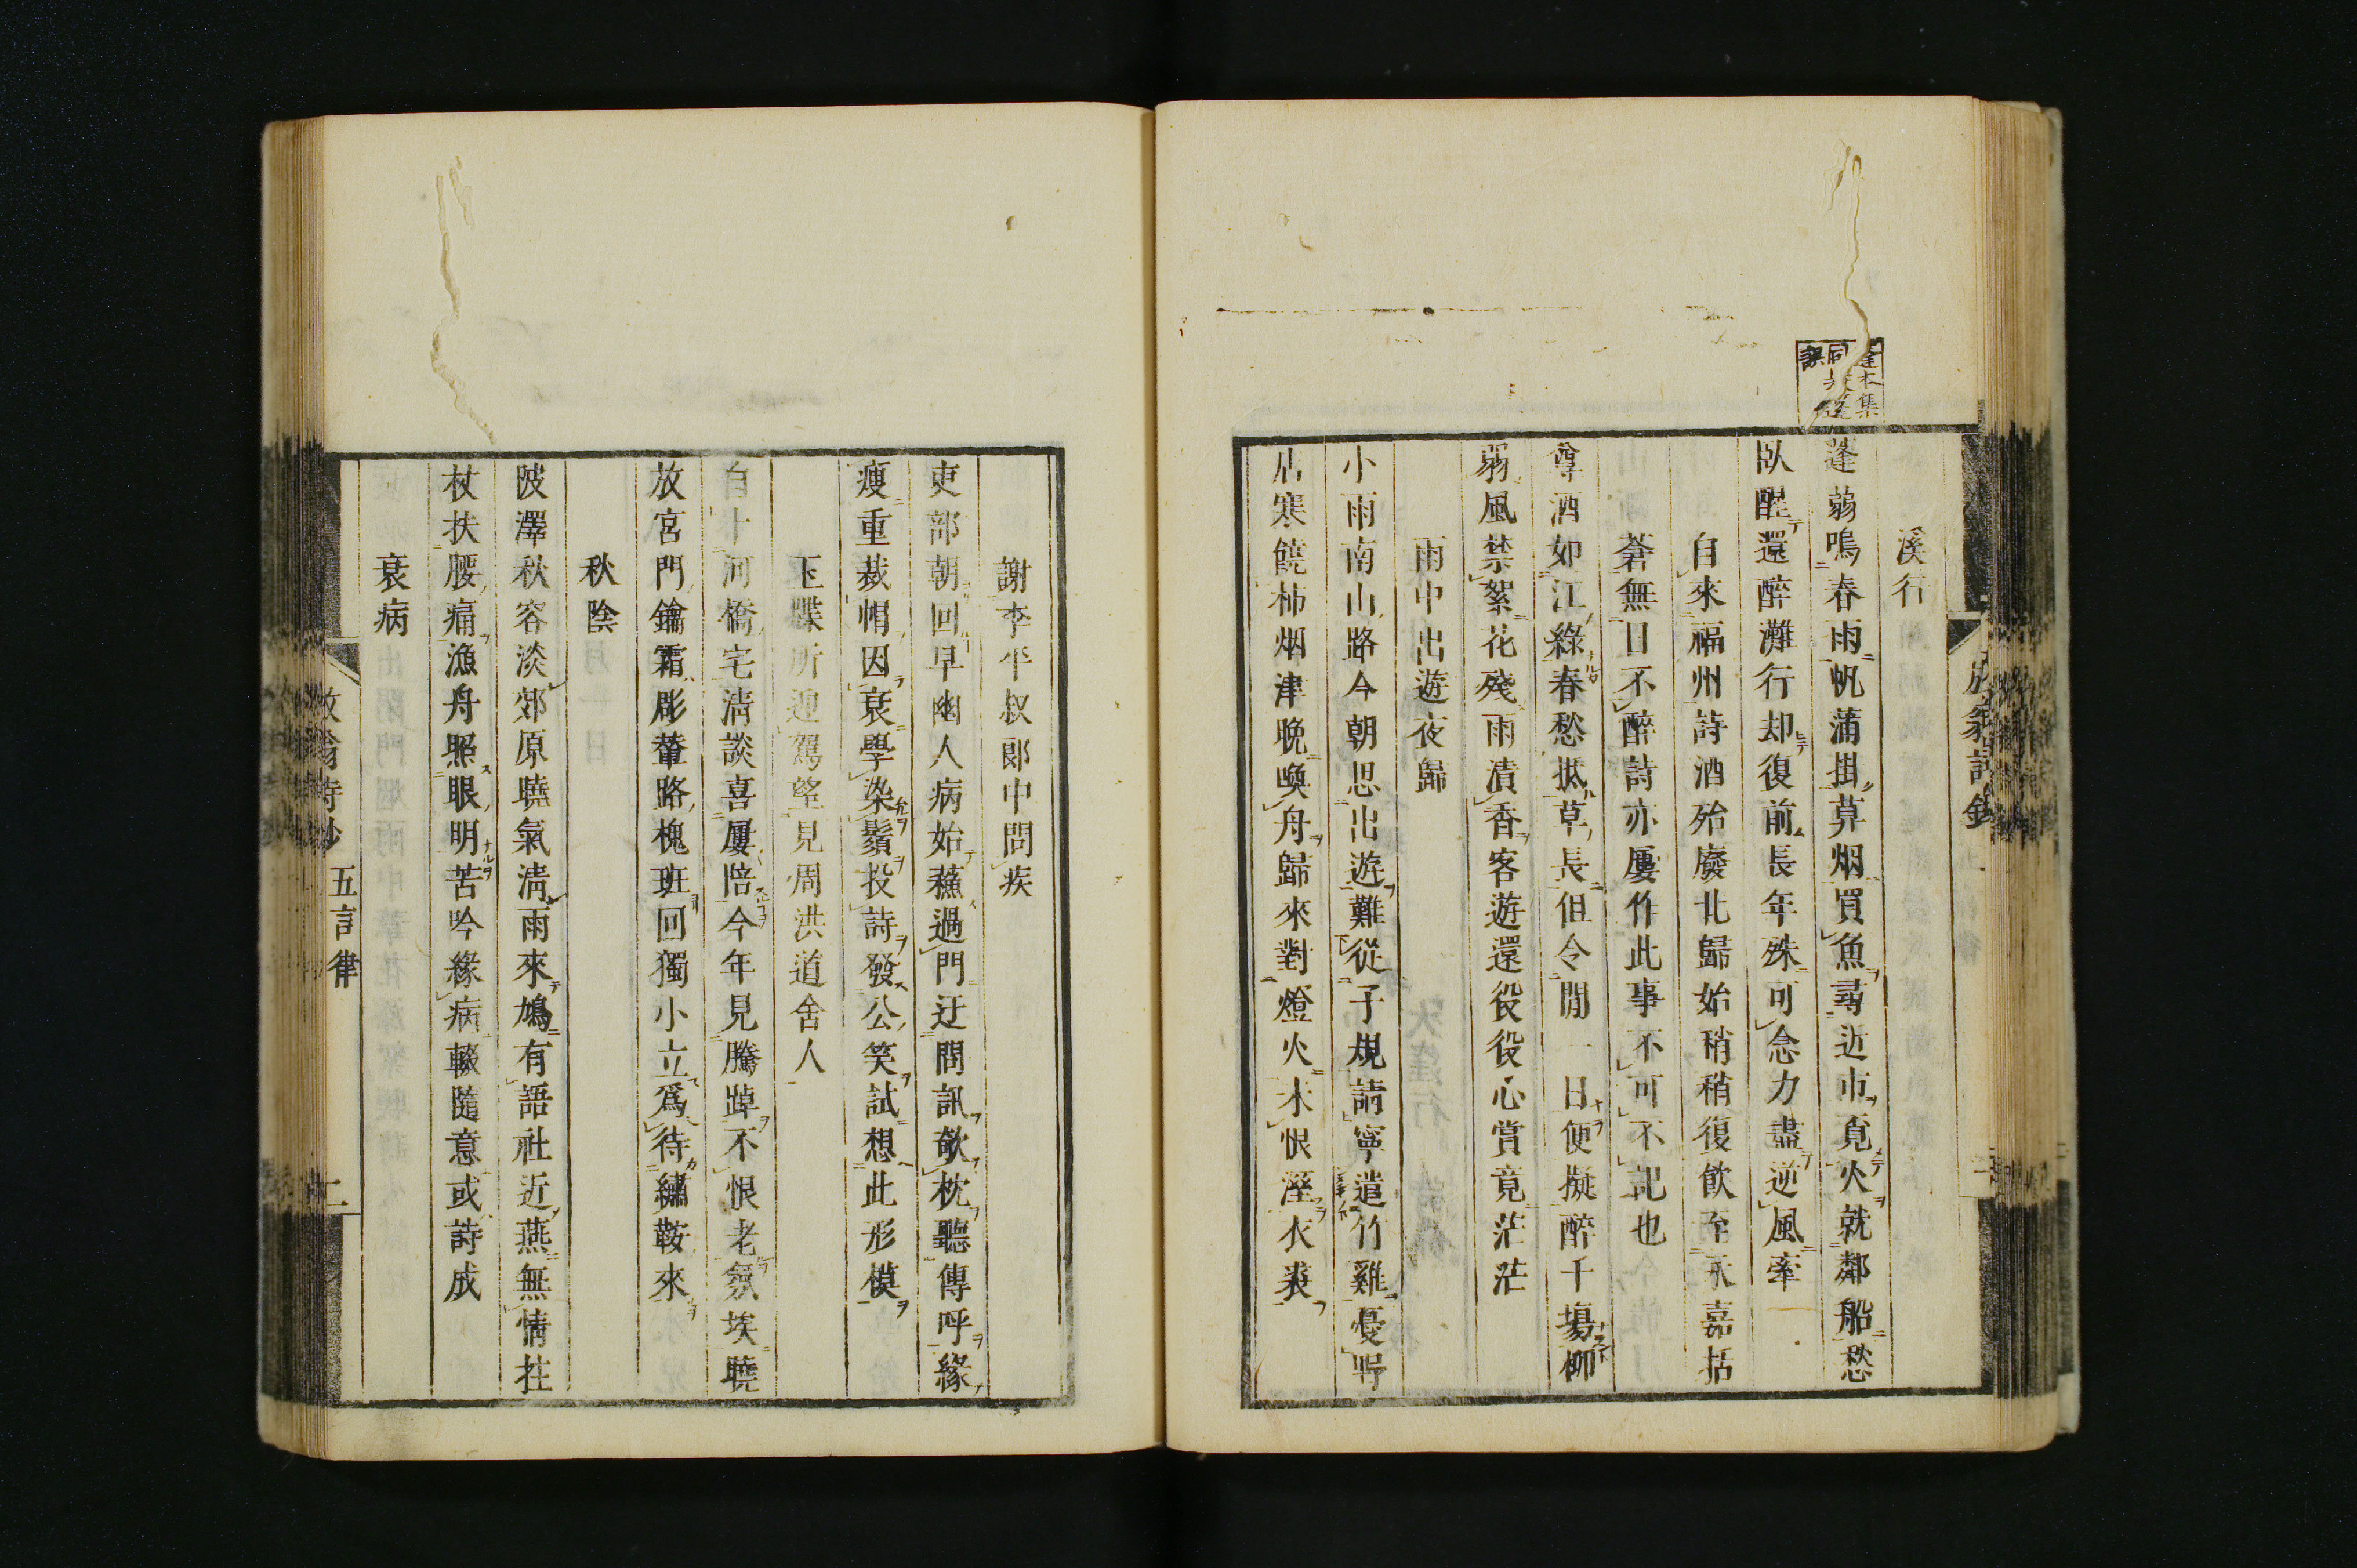 溪行
蓬蒻鳴春雨帆蒲掛莫烟買魚尋近市覓火就鄰船愁
臥醒還醉灘行却復前長年殊可念力盡逆風牽
自來福州詩酒殆廢北歸始稍稍復飲至永嘉括
蒼無日不醉詩亦屢作此事不可不記也
尊酒如江綠春愁抵草長但令閒一日便擬醉千場柳
弱風禁絮花殘雨漬香客遊還役役心賞竟茫茫
雨中出遊夜歸
小雨南山路今朝思出遊難從子規請寧遣竹雞憂野
店寒饒柿烟津晚喚舟歸來對燈火未恨溼衣裘
謝李平叔郎中問疾
吏部朝回早幽人病始蘇過門迂問訊欹枕聽傳呼緣
瘦重裁帽因衰學染鬚投詩發公笑試想此形模
玉牒所迎駕望見周洪道舍人
自卜河橋宅清談喜屢陪今年見騰踔不恨老氛埃曉
放宮門鑰霜彫輦路槐班回獨小立爲待繡鞍來
秋陰
陂澤秋容淡郊原曉氣清雨來鳩有語社近燕無情拄
杖扶腰痛漁舟照眼明苦吟緣病輟隨意或詩成
衰病
放翁詩鈔 五言律 二